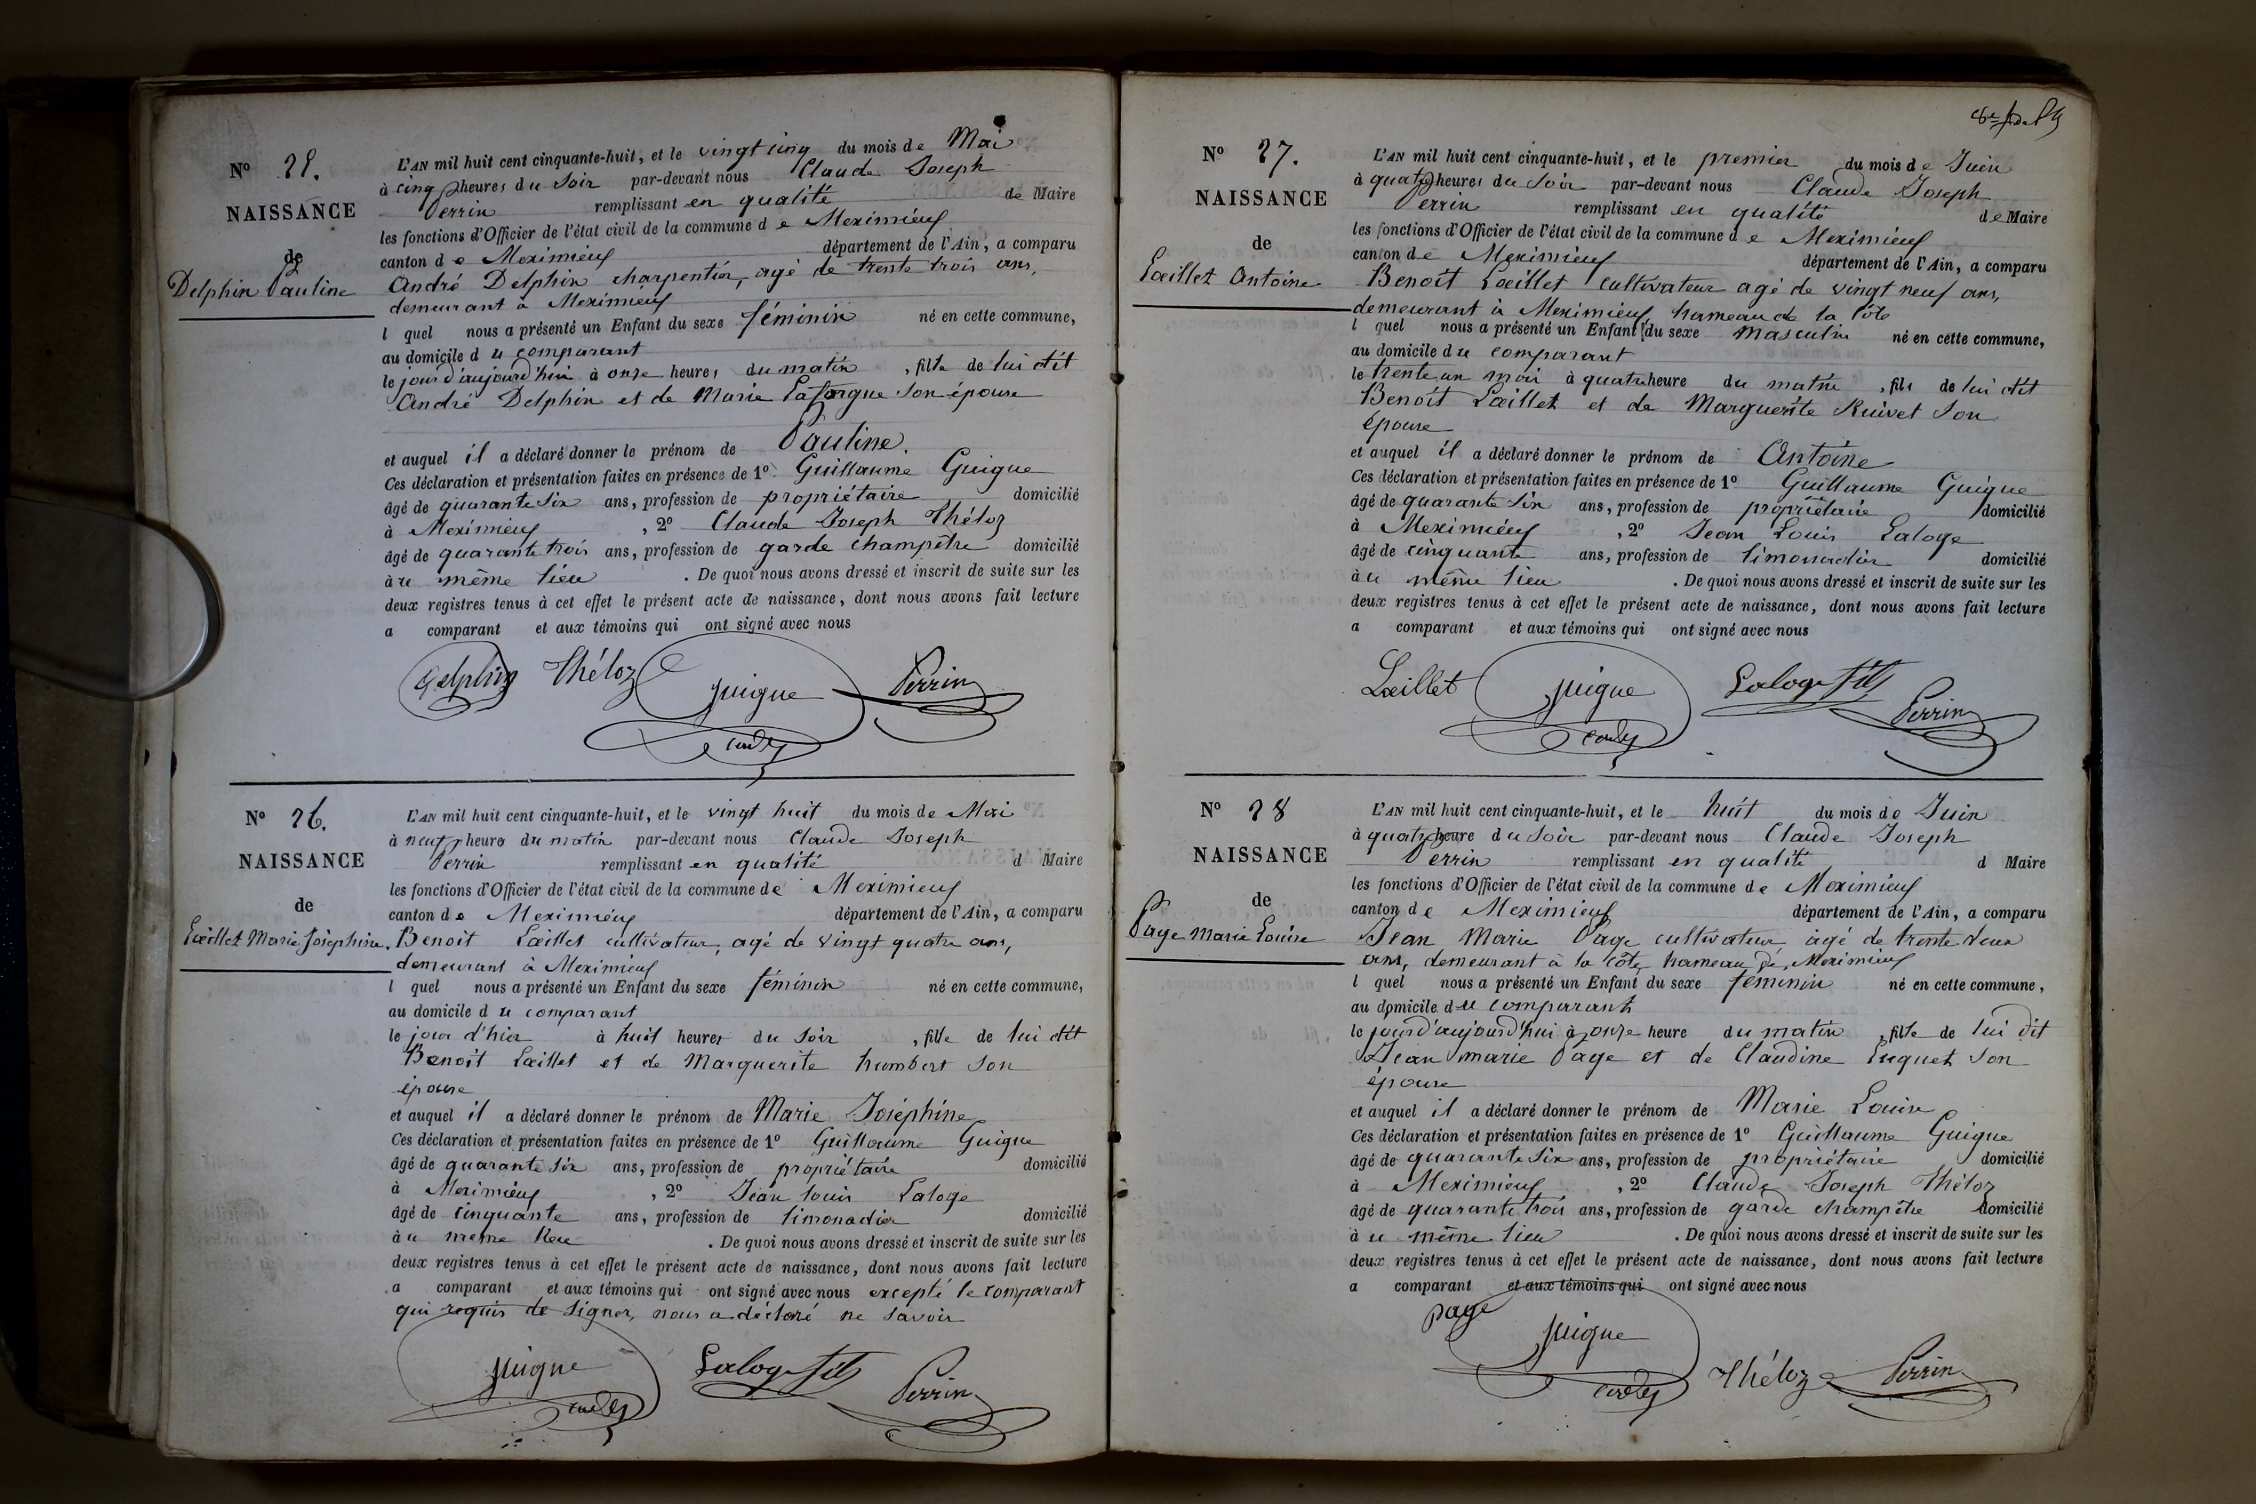 N° 25.
NAISSANCE
de
Delphin Pauline
L'AN mil huit cent cinquante-huit, et le vingt cinq du mois de Mai
à cinq heures du soir par-devant nous Claude Joseph
Perrin remplissant en qualité de Maire
les fonctions d'Officier de l'état civil de la commune de Meximieux
canton de Meximieux département de l'Ain, a comparu
André Delphin charpentier, agé de trente trois ans,
demeurant à Meximieux
l quel nous a présenté un Enfant du sexe féminin né en cette commune,
au domicile du comparant
le jour d'aujourd'hui à onze heures du matin, fille de lui dit
André Delphin et de Marie Laforgue son épouse
et auquel il a déclaré donner le prénom de Pauline.
Ces déclaration et présentation faites en présence de 1° Guillaume Guigue
âgé de quarante six ans, profession de propriétaire domicilié
à Meximieux, 2° Claude Joseph Théloz
âgé de quarante trois ans, profession de garde champêtre domicilié
au même lieu. De quoi nous avons dressé et inscrit de suite sur les
deux registres tenus à cet effet le présent acte de naissance, dont nous avons fait lecture
a comparant et aux témoins qui ont signé avec nous
Delphin Théloz Guigue Perrin
N° 26.
NAISSANCE
de
Lœillet Marie Joséphine.
L'AN mil huit cent cinquante-huit, et le vingt huit du mois de Mai
à neuf heures du matin par-devant nous Claude Joseph
Perrin remplissant en qualité d Maire
les fonctions d'Officier de l'état civil de la commune de Meximieux
canton de Meximieux département de l'Ain, a comparu
Benoit Lœillet cultivateur, agé de vingt quatre ans,
demeurant à Meximieux
l quel nous a présenté un Enfant du sexe féminin né en cette commune,
au domicile du comparant
le jour d'hier à huit heures du soir, fille de lui dit
Benoit Lœillet et de Marguerite humbert son
épouse
et auquel il a déclaré donner le prénom de Marie Joséphine
Ces déclaration et présentation faites en présence de 1° Guillaume Guigue
âgé de quarante six ans, profession de propriétaire domicilié
à Meximieux, 2° Jean louis Laloge
âgé de cinquante ans, profession de limonadier domicilié
au même lieu. De quoi nous avons dressé et inscrit de suite sur les
deux registres tenus à cet effet le présent acte de naissance, dont nous avons fait lecture
a comparant et aux témoins qui ont signé avec nous excepté le comparant
qui requis de signer, nous a déclaré ne savoir
Guigue Laloge fils Perrin
N° 27.
NAISSANCE
de
Lœillet Antoine
L'AN mil huit cent cinquante-huit, et le premier du mois de Juin
à quatre heures du soir par-devant nous Claude Joseph
Perrin remplissant en qualité de Maire
les fonctions d'Officier de l'état civil de la commune de Meximieux
canton de Meximieux département de l'Ain, a comparu
Benoit Lœillet cultivateur agé de vingt neuf ans,
demeurant à Meximieux, hameau de la Côte
l quel nous a présenté un Enfant du sexe masculin né en cette commune,
au domicile du comparant
le trente un mai à quatre heure du matin, fils de lui dit
Benoit Lœillet et de Marguerite Ruivet son
épouse
et auquel il a déclaré donner le prénom de Antoine
Ces déclaration et présentation faites en présence de 1° Guillaume Guigue
âgé de quarante six ans, profession de propriétaire domicilié
à Meximieux, 2° Jean Louis Laloge
âgé de cinquante ans, profession de limonadier domicilié
au même lieu. De quoi nous avons dressé et inscrit de suite sur les
deux registres tenus à cet effet le présent acte de naissance, dont nous avons fait lecture
a comparant et aux témoins qui ont signé avec nous
Lœillet Guigue Laloge fils Perrin
N° 28
NAISSANCE
de
Page Marie Louise
L'AN mil huit cent cinquante-huit, et le huit du mois de Juin
à quatre heure du soir par-devant nous Claude Joseph
Perrin remplissant en qualité d Maire
les fonctions d'Officier de l'état civil de la commune de Meximieux
canton de Meximieux département de l'Ain, a comparu
Jean Marie Page cultivateur, agé de trente deux
ans, demeurant à la côte, hameau de Meximieux
l quel nous a présenté un Enfant du sexe féminin né en cette commune,
au domicile du comparant
le jour d'aujourd'hui à onze heure du matin, fille de lui dit
Jean marie Page et de Claudine Luquet son
épouse
et auquel il a déclaré donner le prénom de Marie Louise
Ces déclaration et présentation faites en présence de 1° Guillaume Guigue
âgé de quarante six ans, profession de propriétaire domicilié
à Meximieux, 2° Claude Joseph Théloz
âgé de quarante trois ans, profession de garde champêtre domicilié
au même lieu. De quoi nous avons dressé et inscrit de suite sur les
deux registres tenus à cet effet le présent acte de naissance, dont nous avons fait lecture
a comparant et aux témoins qui ont signé avec nous
page Guigue Théloz Perrin